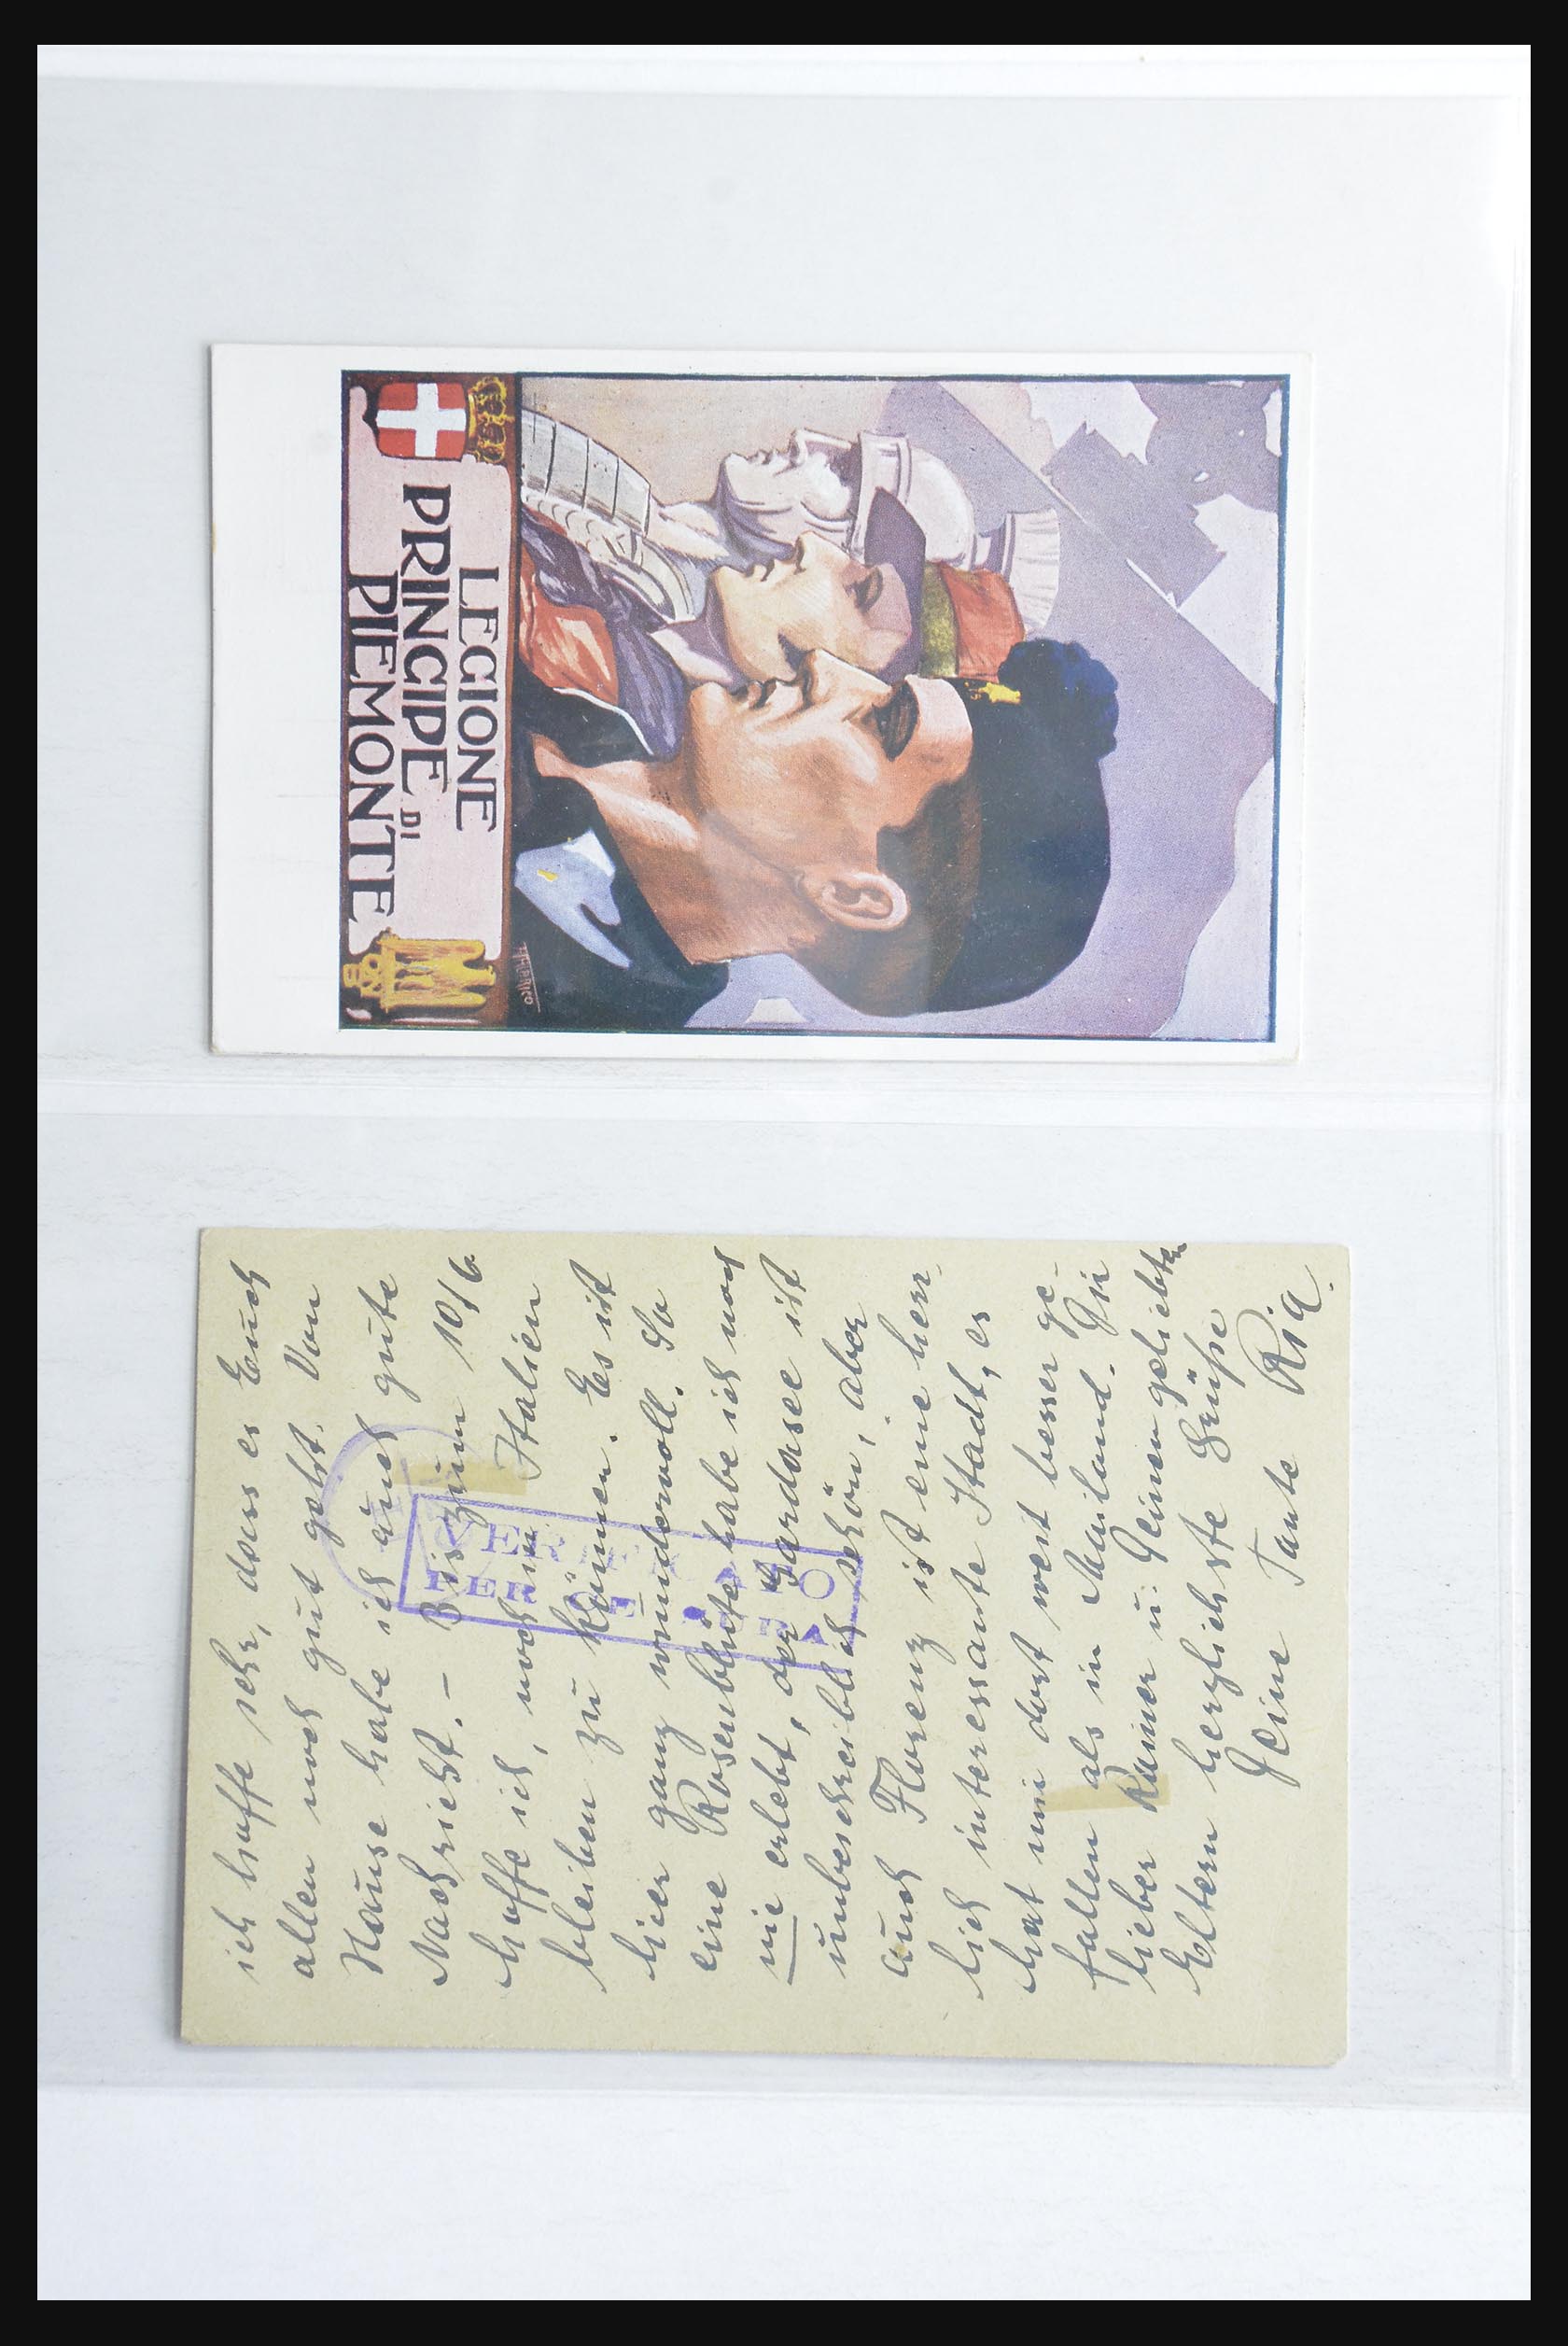 LEGIONE
PRINCIPE DI
PIEMONTE
ich hoffe sehr, dass es Euch
allen noch gut geht. Von
Hause habe ich auch gute
Nachricht. – Bis zum 10/6
hoffe ich, noch in Italien
bleiben zu können. Es ist
hier ganz wundervoll. So
eine Rosenblüte habe ich noch
nie erlebt, der Gardasee ist
unbeschreiblich schön, aber
auch Florenz ist eine herr-
lich interessante Stadt, es
hat mir dort weit besser ge-
fallen als in Mailand. Dir
lieber Rainer u. Deinen geliebten
Eltern herzlichste Grüße
Deine Tante Ria.
VERIFICATO
PER CENSURA